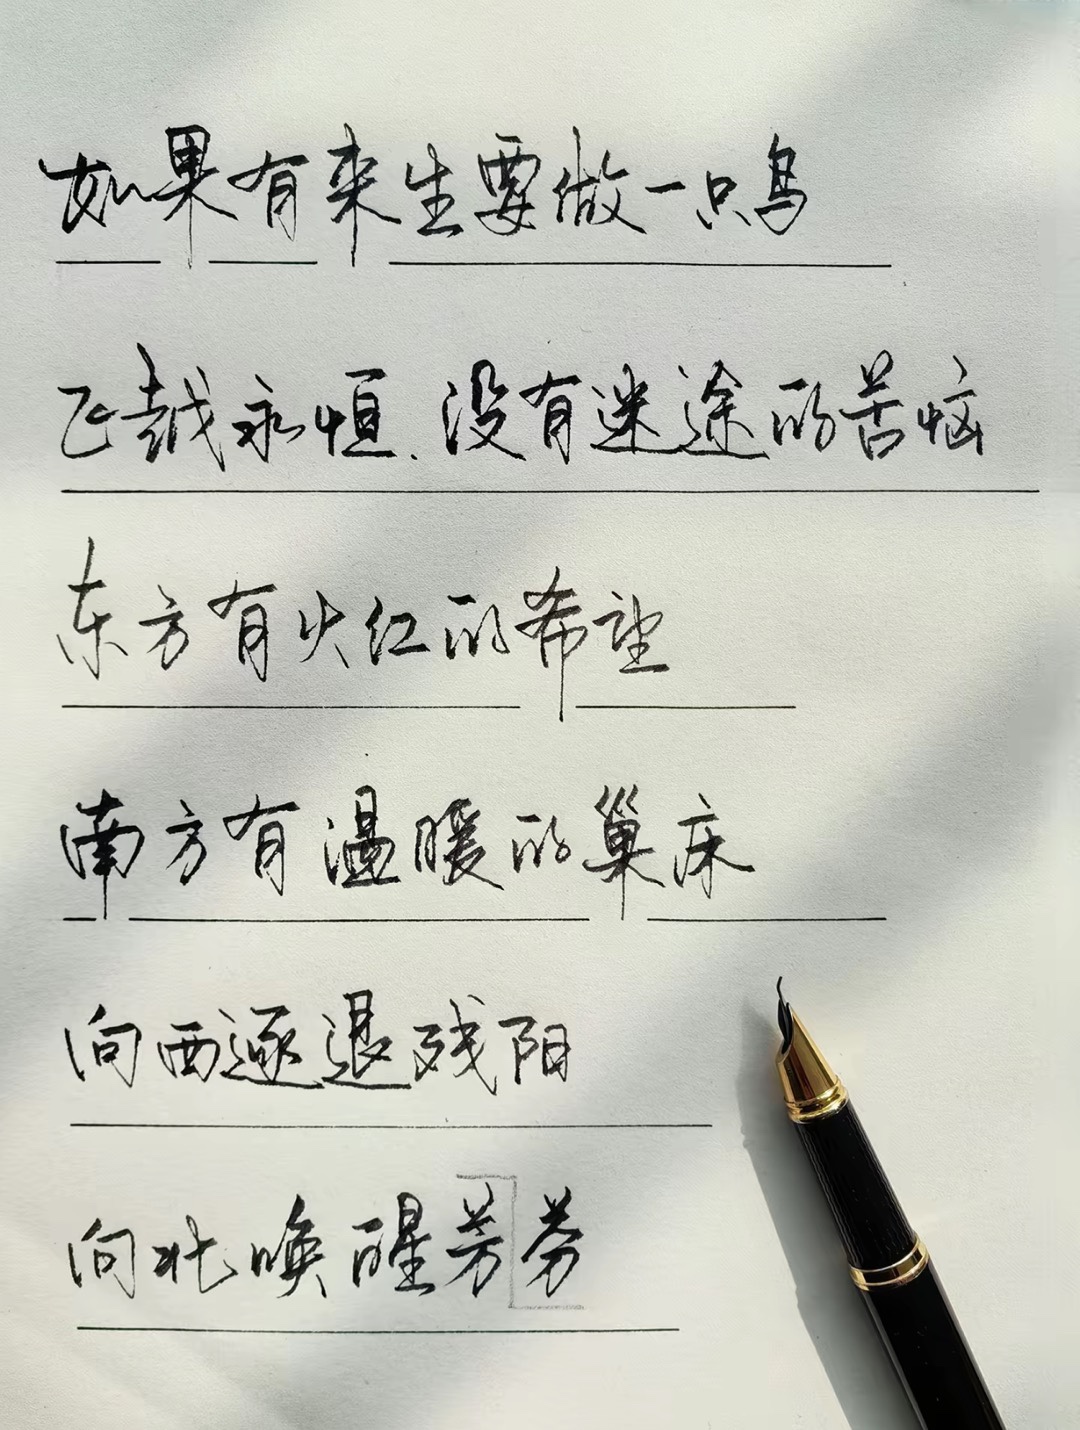 如果有来生要做一只鸟
飞越永恒.没有迷途的苦恼
东方有火红的希望
南方有温暖的巢床
向西逐退残阳
向北唤醒芳芬